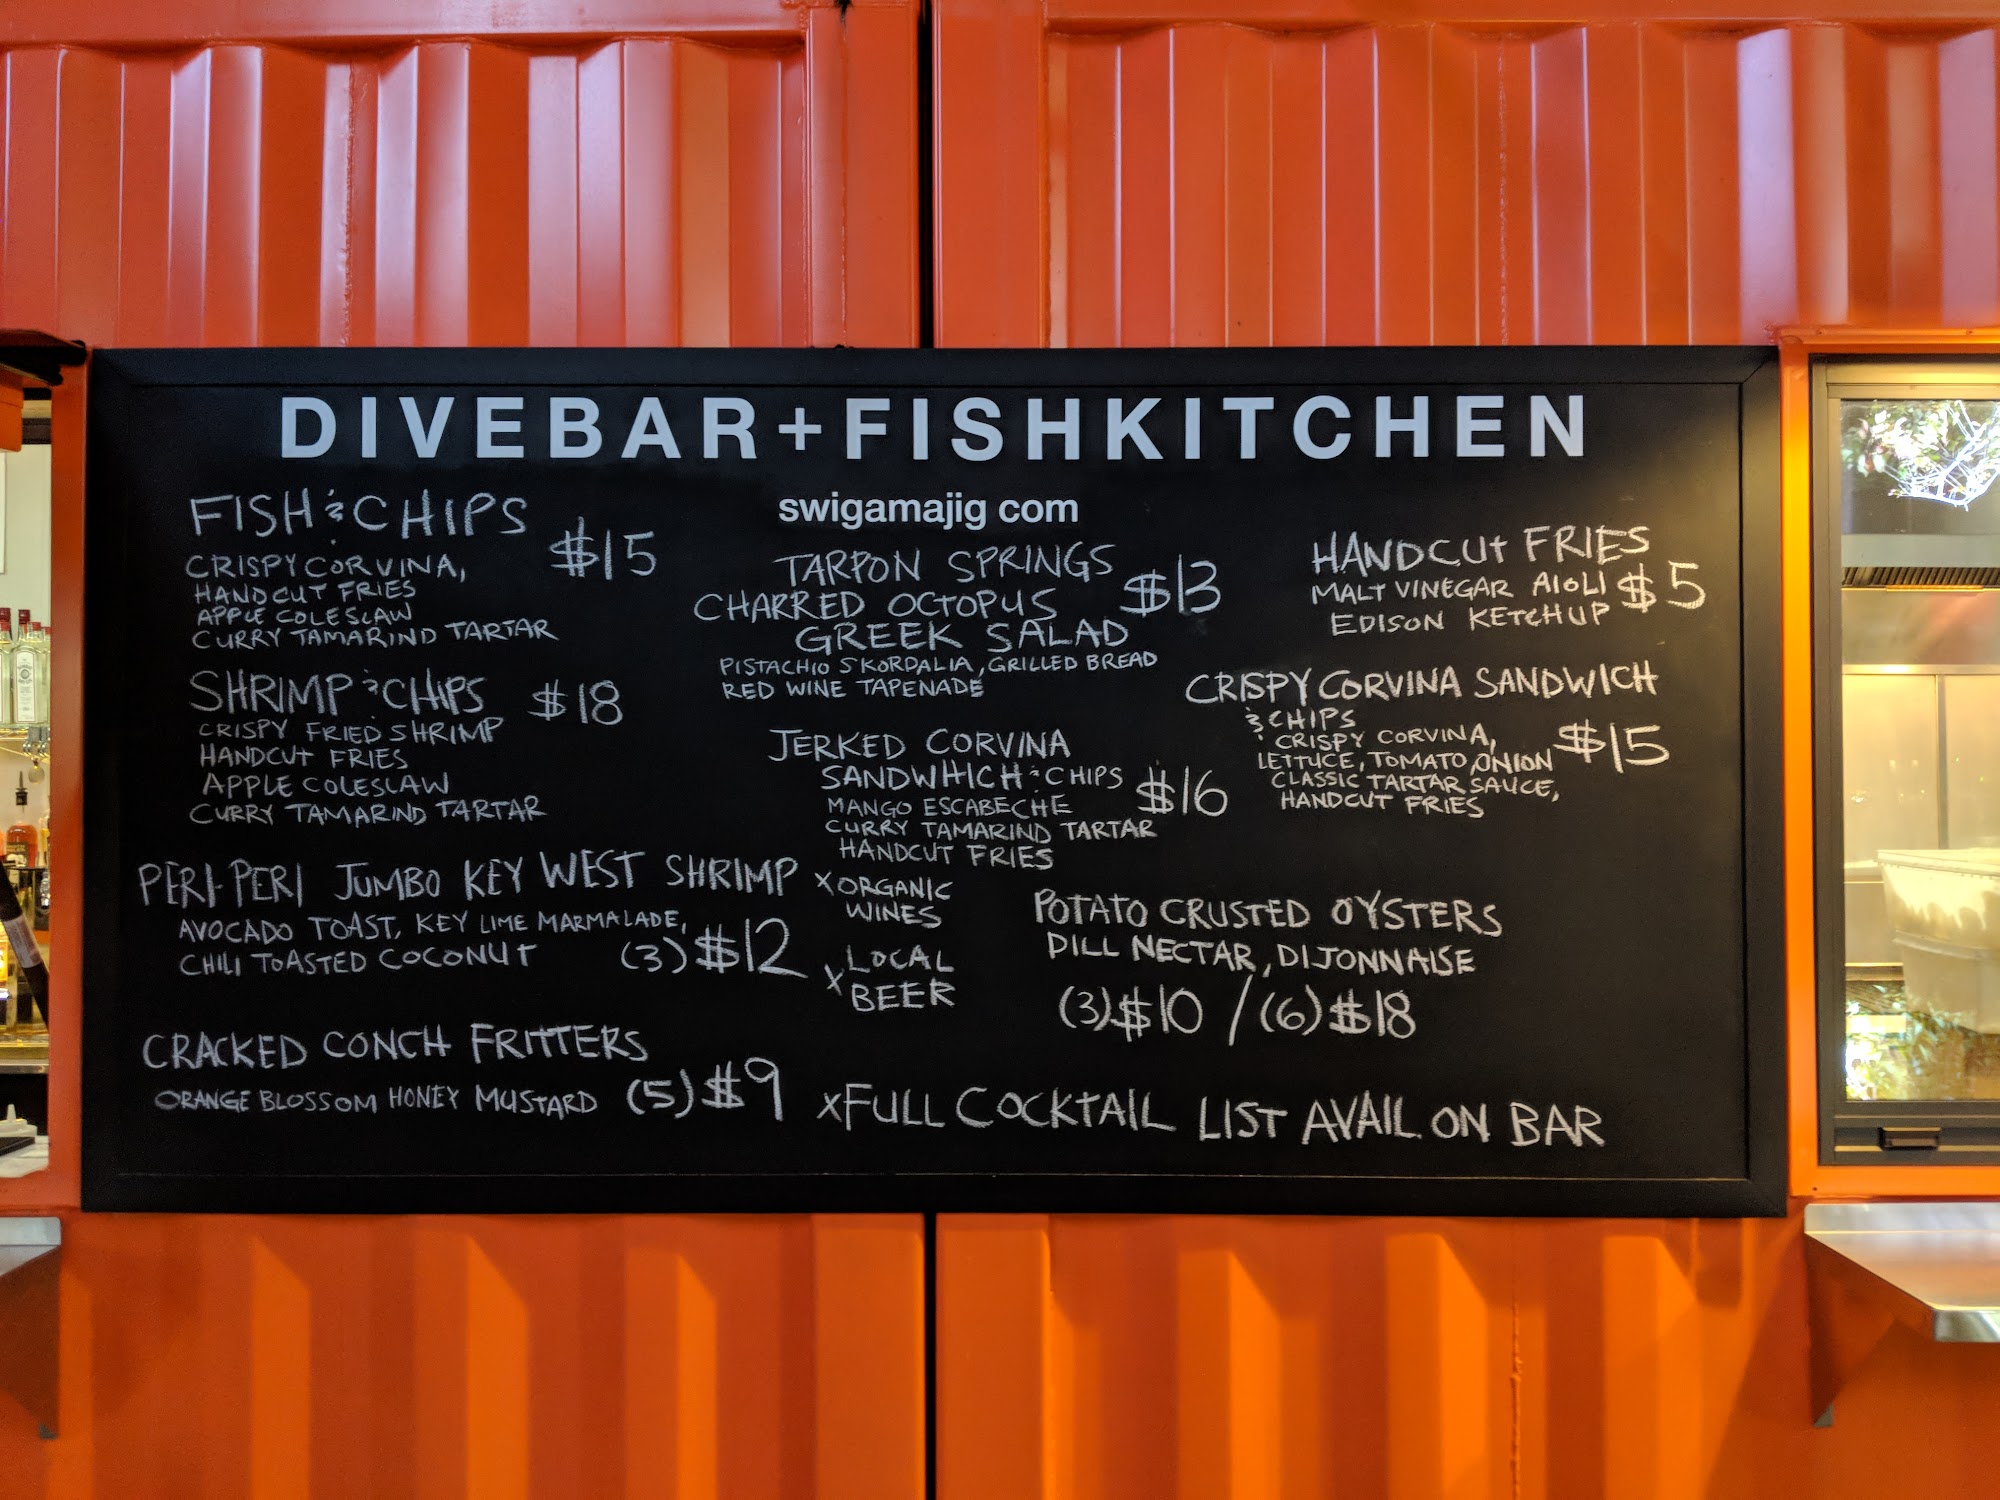 DIVEBAR+FISHKITCHEN
swigamajig com
FISH & CHIPS
$15
CRISPY CORVINA,
HANDCUT FRIES
APPLE COLESLAW
CURRY TAMARIND TARTAR
SHRIMP & CHIPS $18
CRISPY FRIED SHRIMP
HANDCUT FRIES
APPLE COLESLAW
CURRY TAMARIND TARTAR
PERI-PERI JUMBO KEY WEST SHRIMP
AVOCADO TOAST, KEY LIME MARMALADE,
CHILI TOASTED COCONUT (3) $12
CRACKED CONCH FRITTERS
ORANGE BLOSSOM HONEY MUSTARD (5) $9
TARPON SPRINGS
CHARRED OCTOPUS $13
GREEK SALAD
PISTACHIO SKORDALIA, GRILLED BREAD
RED WINE TAPENADE
JERKED CORVINA
SANDWHICH & CHIPS $16
MANGO ESCABECHE
CURRY TAMARIND TARTAR
HANDCUT FRIES
x ORGANIC
WINES
x LOCAL
BEER
HANDCUT FRIES
MALT VINEGAR AIOLI $5
EDISON KETCHUP
CRISPY CORVINA SANDWICH
& CHIPS
CRISPY CORVINA, $15
LETTUCE, TOMATO, ONION
CLASSIC TARTAR SAUCE,
HANDCUT FRIES
POTATO CRUSTED OYSTERS
DILL NECTAR, DIJONNAISE
(3) $10 / (6) $18
x FULL COCKTAIL LIST AVAIL. ON BAR